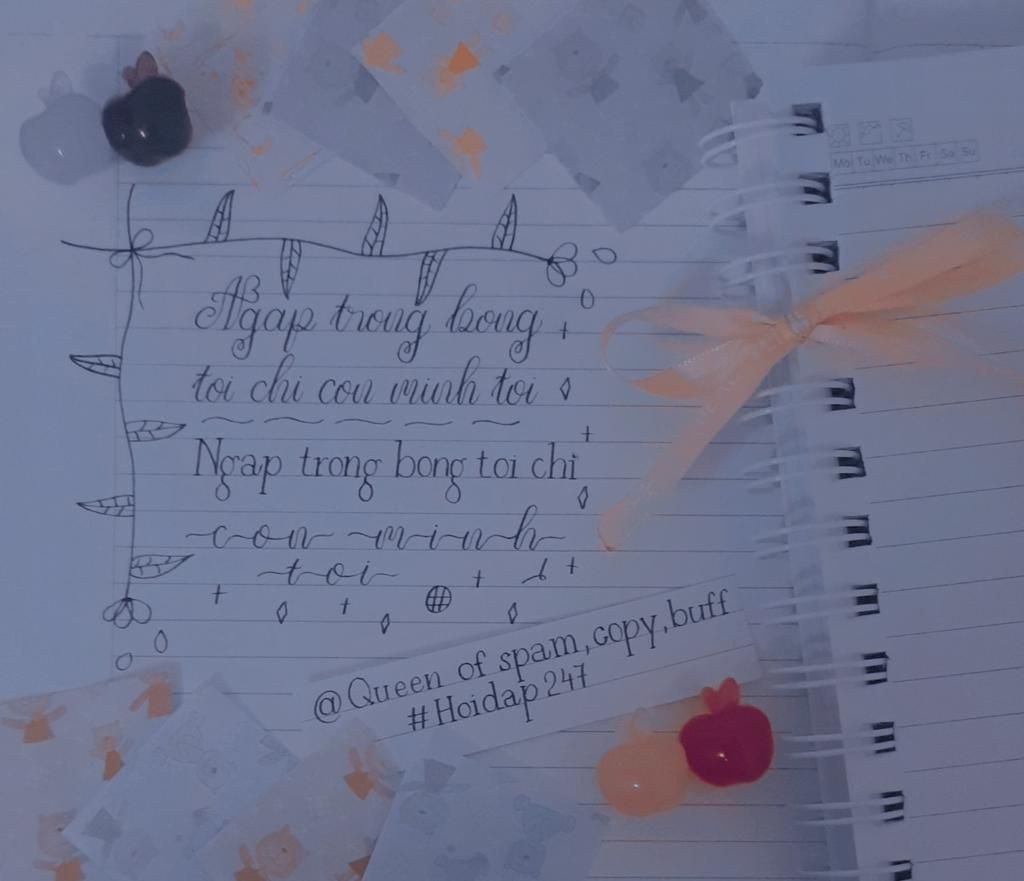 Mo Tu We Th Fr Sa Su
Ngap trong bong
toi chi con minh toi
Ngap trong bong toi chi
con minh
toi
@Queen of spam,copy,buff
#Hoidap247